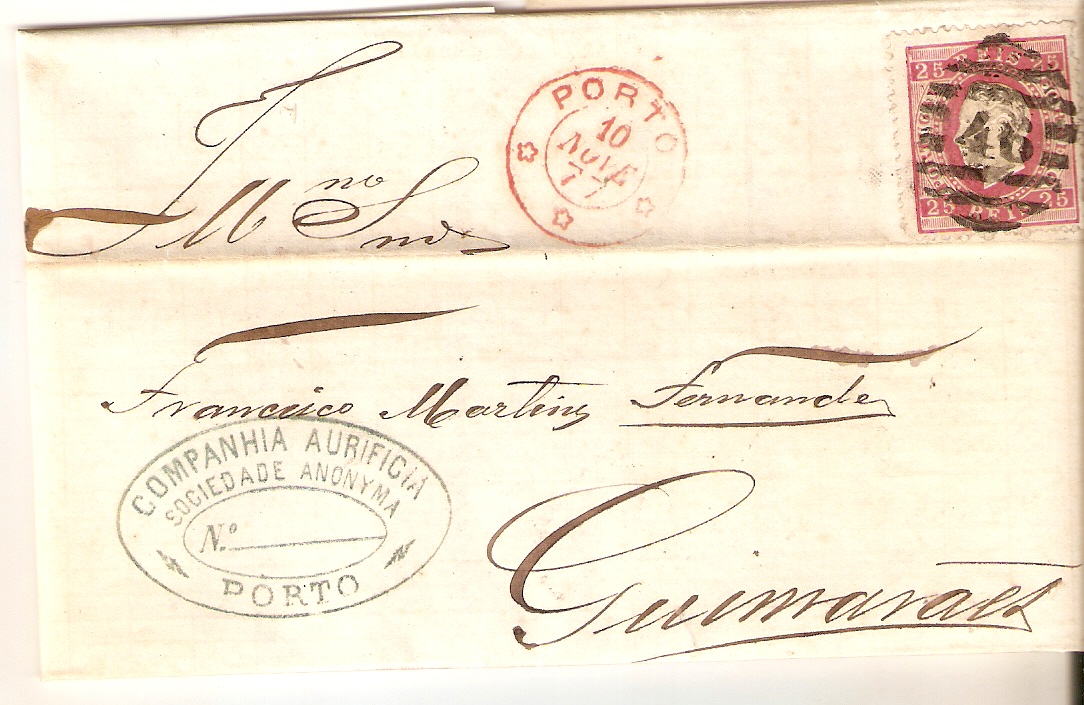 PORTO
10
NOVE
77
25 REIS 25
46
25 REIS 25
Illmo Snr
Francisco Martins Fernandes
COMPANHIA AURIFICIA
SOCIEDADE ANONYMA
Nº
PORTO
Guimarães